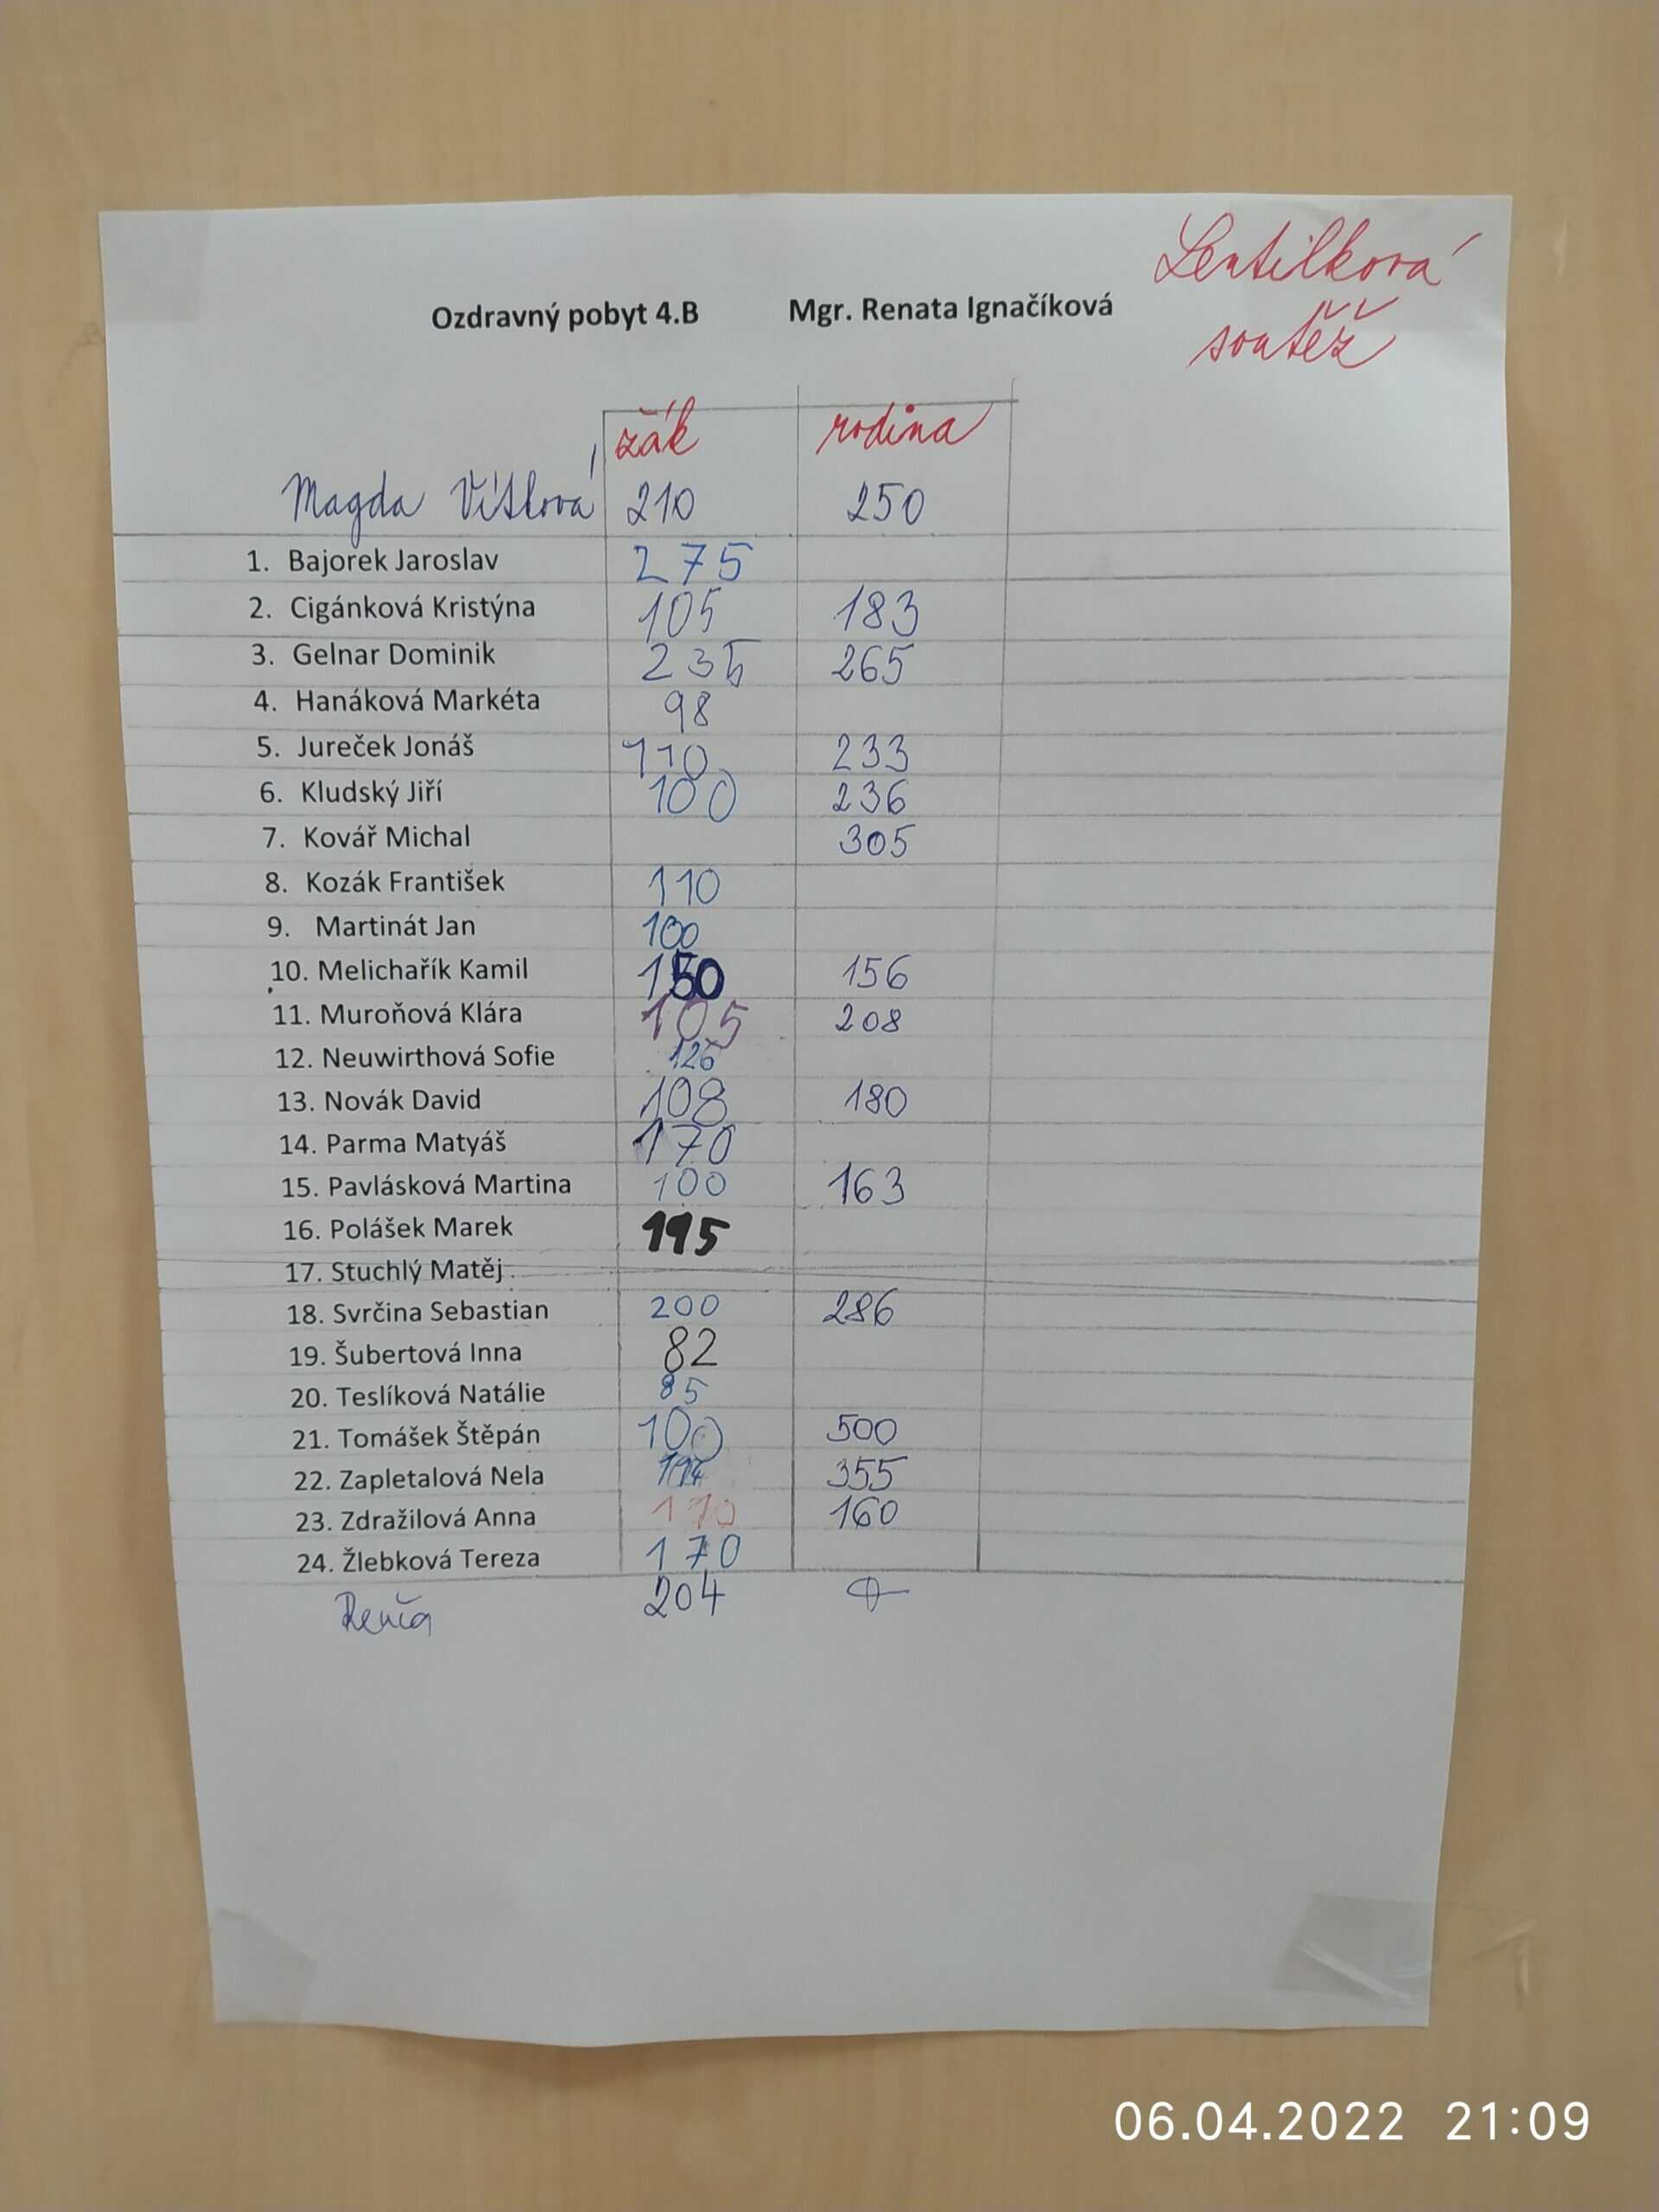 Lentilková
soutěž
Ozdravný pobyt 4.B Mgr. Renata Ignačíková
žák rodina
Magda Vítlová 210 250
1. Bajorek Jaroslav 275
2. Cigánková Kristýna 105 183
3. Gelnar Dominik 235 265
4. Hanáková Markéta 98
5. Jureček Jonáš 110 233
6. Kludský Jiří 100 236
7. Kovář Michal 305
8. Kozák František 110
9. Martinát Jan 100
10. Melichařík Kamil 150 156
11. Muroňová Klára 105 208
12. Neuwirthová Sofie 126
13. Novák David 108 180
14. Parma Matyáš 170
15. Pavlásková Martina 100 163
16. Polášek Marek 195
17. Stuchlý Matěj
18. Svrčina Sebastian 200 286
19. Šubertová Inna 82
20. Teslíková Natálie 85
21. Tomášek Štěpán 100 500
22. Zapletalová Nela 355
23. Zdražilová Anna 170 160
24. Žlebková Tereza 170
Renča 204
06.04.2022 21:09